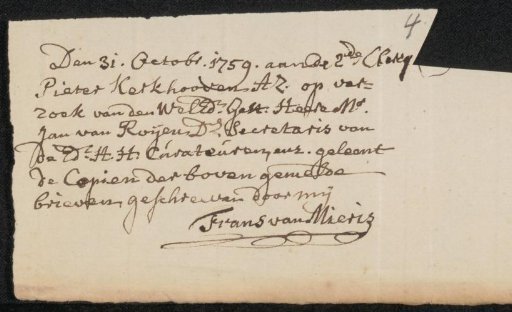 4
Den 31. Octobr. 1759. aan de 2de Clerq
Pieter Kerkhooven AZ. op ver-
zoek van den WelEd. Gestr. Heere Mr.
Jan van Royen Dr. Secretaris van
de Ed. H. H. Curateuren, enz. geleent
de Copien der boven gemelde
brieven, geschreven door mij
Frans van Mieris